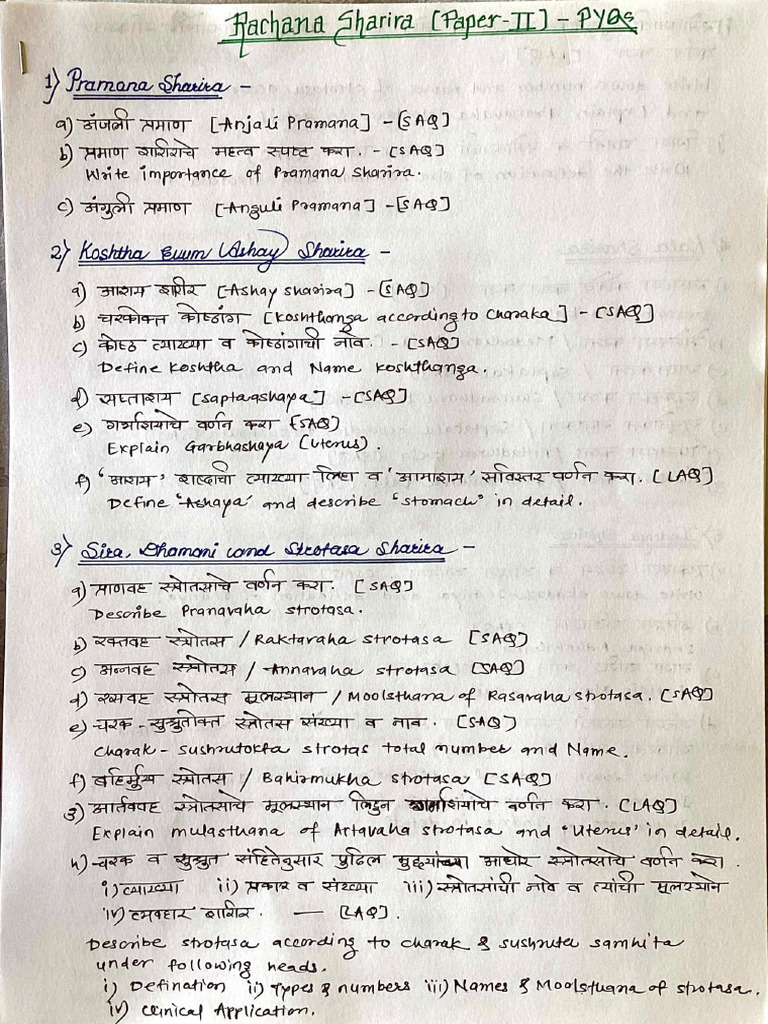 Rachana Sharira [Paper-II] - PYQs
1) Pramana Sharira -
a) अंजली प्रमाण [Anjali Pramana] - [SAQ]
b) प्रमाण शारीराचे महत्व स्पष्ट करा. - [SAQ]
Write importance of Pramana Sharira.
c) अंगुली प्रमाण [Anguli Pramana] - [SAQ]
2) Koshtha Evum (Ashay) Sharira -
a) आशय शारीर [Ashay Sharira] - [SAQ]
b) चरकोक्त कोष्ठांग [Koshthanga according to Charaka] - [SAQ]
c) कोष्ठ व्याख्या व कोष्ठांगाची नावे. - [SAQ]
Define Koshtha and Name Koshthanga.
d) सप्ताशय [Saptaashaya] - [SAQ]
e) गर्भाशयाचे वर्णन करा [SAQ]
Explain Garbhashaya (Uterus).
f) 'आशय' शब्दाची व्याख्या लिहा व 'आमाशय' सविस्तर वर्णन करा. [LAQ]
Define 'Ashaya' and describe "stomach" in detail.
3) Sira, Dhamani and Strotasa Sharira -
a) प्राणवह स्त्रोतसाचे वर्णन करा. [SAQ]
Describe Pranavaha strotasa.
b) रक्तवह स्त्रोतस / Raktavaha strotasa [SAQ]
c) अन्नवह स्त्रोतस / Annavaha strotasa [SAQ]
d) रसवह स्त्रोतस मूलस्थान / Moolsthana of Rasavaha strotasa. [SAQ]
e) चरक - सुश्रुतोक्त स्त्रोतस संख्या व नाव. [SAQ]
Charak - sushrutokta strotas total number and Name.
f) बहिर्मुख स्त्रोतस / Bahirmukha strotasa [SAQ]
g) आर्तववह स्त्रोतसाचे मूलस्थान लिहुन गर्भाशयाचे वर्णन करा. [LAQ]
Explain mulasthana of Artavaha strotasa and 'Uterus' in detail.
h) चरक व सुश्रुत संहितेनुसार पुढिल मुद्द्यांच्या आधारे स्त्रोतसाचे वर्णन करा.
i) व्याख्या ii) प्रकार व संख्या iii) स्त्रोतसांची नावे व त्यांची मूलस्थाने
iv) व्यवहार शारीर. — [LAQ].
Describe strotasa according to charak & sushruta samhita
under following heads.
i) Defination ii) Types & numbers iii) Names & Moolsthana of strotasa.
iv) Clinical Application.